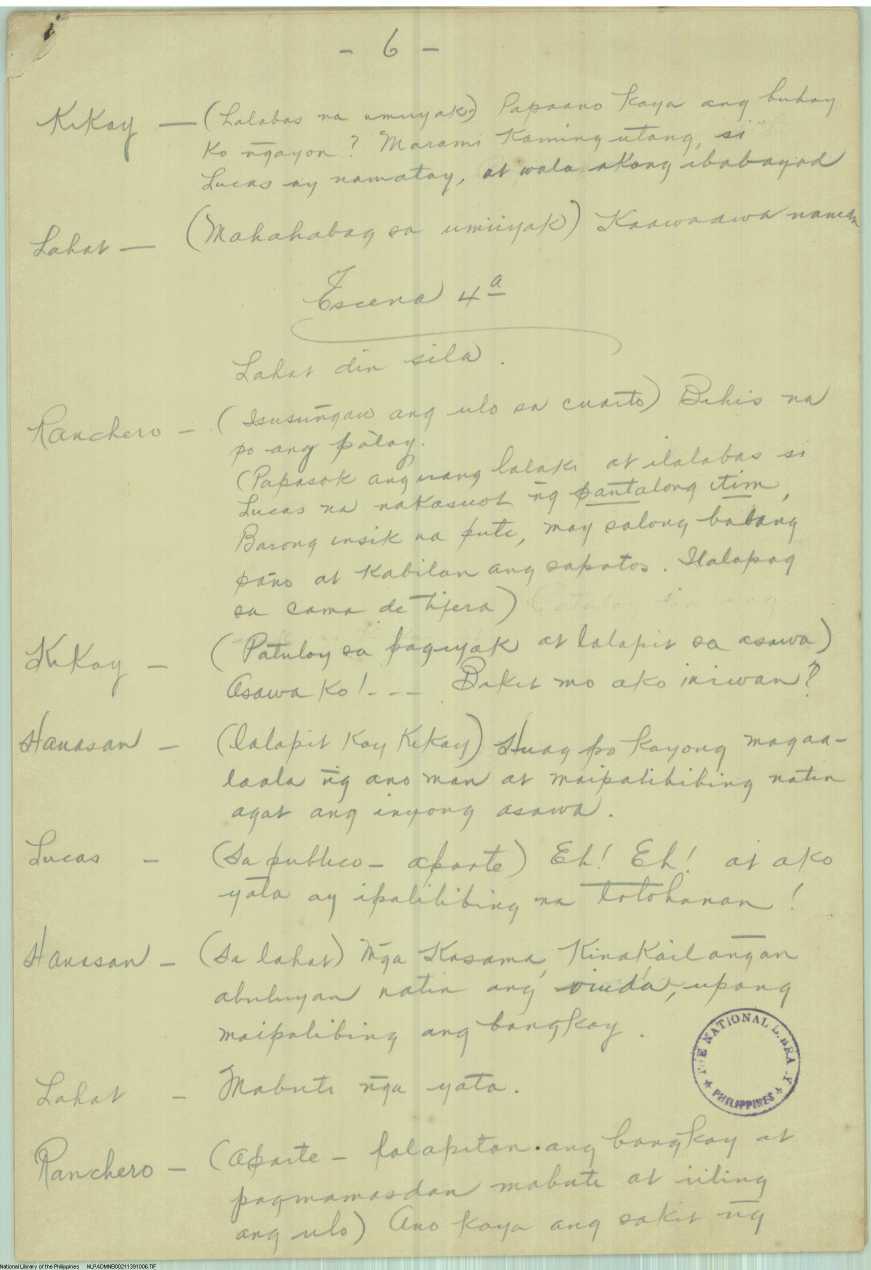 - 6 -
Kikay — (Lalabas na umiiyak) Papaano kaya ang buhay
ko ñgayon? Marami kaming utang, si
Lucas ay namatay, at wala akong ibabayad
Lahat — (Mahahabag sa umiiyak) Kaawaawa naman
Escena 4ª
Lahat din sila.
Ranchero - (Isusuñgaw ang ulo sa cuarto) Bihis na
po ang patay.
(Papasok ang isang lalaki at ilalabas si
Lucas na nakasuot ñg pantalong itim,
Barong insik na puti, may salong babang
paño at kabilan ang sapatos. Ilalapag
sa cama de tijera)
Kikay - (Patuloy sa pag-iyak at lalapit sa asawa)
Asawa ko! --- Bakit mo ako iniwan?
Hauasan - (lalapit kay Kikay) Huag po kayong magaa-
laala ñg ano man at maipalilibing natin
agat ang inyong asawa.
Lucas - (Sa publico - aparte) Eh! Eh! at ako
yata ay ipalilibing na totohanan!
Hauasan - (Sa lahat) Mga kasama, kinakailañgan
abuluyan natin ang viuda, upang
maipalibing ang bangkay.
Lahat - Mabuti ñga yata.
Ranchero - (Aparte - lalapitan ang bangkay at
pagmamasdan mabuti at iiling
ang ulo) Ano kaya ang sakit ñg
THE NATIONAL LIBRARY
PHILIPPINES
National Library of the Philippines NLPADMNB00211391006.TIF